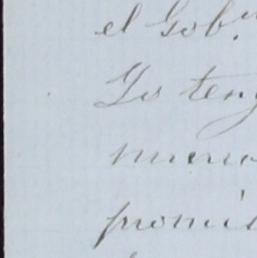 el Gob.
Yo teng
promis